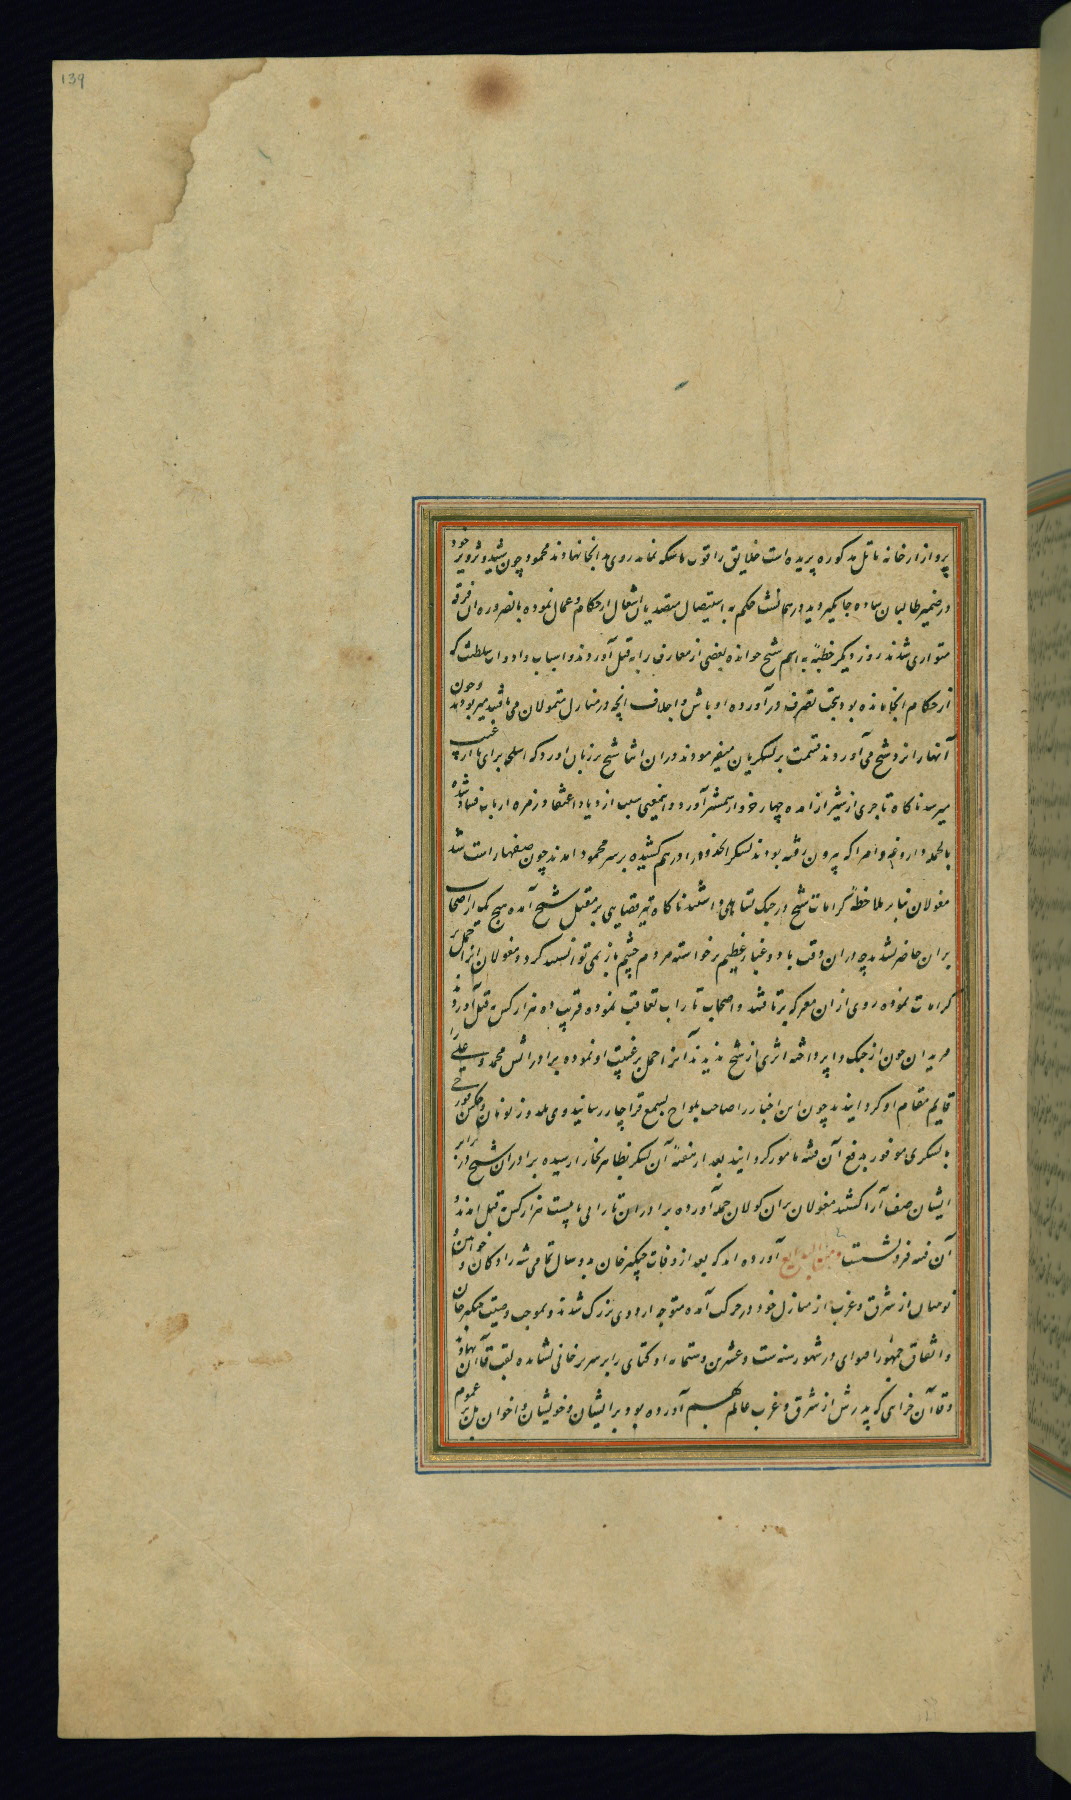 139
پرواز از خانه ماتل مذکوره پریده است خلایق را قوت ماسکه نمانده روی بدانجا نهادند محمود چون شید و تزویر خود
در ضمیر طالبان ساده جایگیر دید در همان شب حکم به استیصال متصدیان اشغال از حکام و عمال نموده بالضروره آن فرقه
متواری شدند روز دیگر خطبه به اسم شیخ خوانده بعضی از معارف را به قتل آوردند و اسباب و ادوات سلطنت که
از حکام آنجا مانده بود بتحت تصرف درآورده اوباش و اجلاف آنچه در منازل متمولان می یافتند میربودند و چون
آنها را نزد شیخ می آوردند قسمت بر لشکریان میفرمودند در آن اثنا شیخ بر زبان آورد که اسلحه برای ما از غیب
میرسد ناگاه تاجری از شیراز آمده چهار خروار شمشیر آورد و اینمعنی سبب ازدیاد اعتقاد زمره ارباب فساد شده
بالجمله داروغه و امرا که بیرون رفته بودند لشکر الحدود را درهم کشیده بر سر محمود آمدند چون صفها راست شد
مغولان بنابر ملاحظه کرامات شیخ در جنگ تساهلی داشتند ناگاه تیر قضایی بر مقتل شیخ آمده هیچ یک از اصحاب
بر آن حاضر نشدند چه در آن وقت باد و غبار عظیم برخواسته مردم چشم باز نمی توانستند کرد و مغولان آنرا حمل بر
کرامات نموده روی از آن معرکه برتافتند و اصحاب تاراب تعاقب نموده قریب ده هزار کس به قتل آوردند
مریدان چون از جنگ وا پرداخته اثری از شیخ ندیدند آنرا حمل بر غیبت او نموده برادرانش محمد و علی را
قایم مقام او گردانیدند چون این اخبار را صاحب یلواج بسمع قراچار رسانید وی یلدوز نویان و چکین قورچی
با لشکری موفور به دفع آن فتنه مامور گردانید بعد از هفته آن لشکر بظاهر بخارا رسیده برادران شیخ در برابر
ایشان صف آرا گشتند مغولان بر آن گولان حمله آورده برادران تارابی با بیست هزار کس به قتل آمدند و
آن فتنه فرو نشست و من البدایع آورده اند که بعد از وفات چنگیز خان به دو سال تمامی شهزادگان و خواتین و
نوینان از شرق و غرب از منازل خود در حرکت آمده متوجه اردوی بزرگ شدند و بموجب وصیت چنگیز خان
و اتفاق جمهور اصوای در شهور سنه ست و عشرین و ستمائه اوکتای را بر سریر خانی نشانده لقب قاآن نهادند
و قاآن خزاینی که پدرش از شرق و غرب عالم بهم آورده بود بر ایشان و خویشان و اخوان بل بر عموم